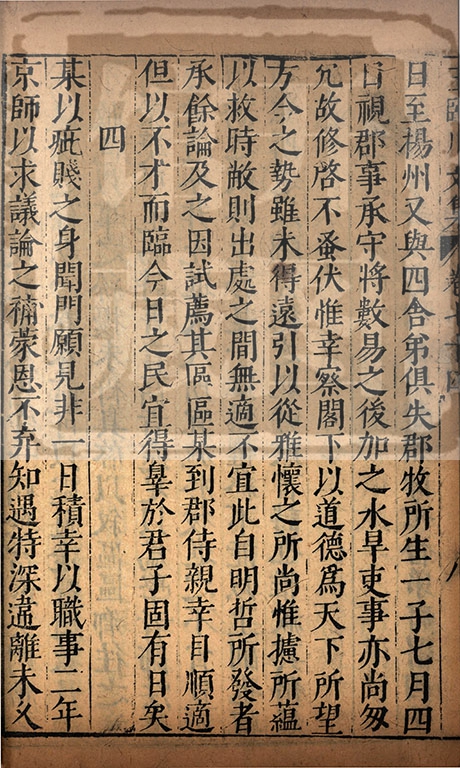 日至揚州又與四舍弟俱失郡牧所生一子七月四
日視郡事承守將數易之後加之水旱吏事亦尚匆
冗故修啓不蚤伏惟幸察閣下以道德爲天下所望
方今之勢雖未得遠引以從雅懷之所尚惟攄所蘊
以救時敝則出處之間無適不宜此自明哲所發者
承餘論及之因試薦其區區某到郡侍親幸自順適
但以不才而臨今日之民宜得辠於君子固有日矣
四
某以疵賤之身聞門願見非一日積幸以職事二年
京師以求議論之補蒙恩不弃知遇特深違離未久